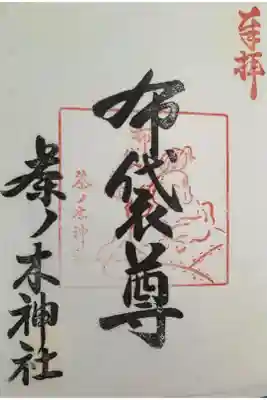 奉拝
布袋尊
茶ノ木神社
茶ノ木神